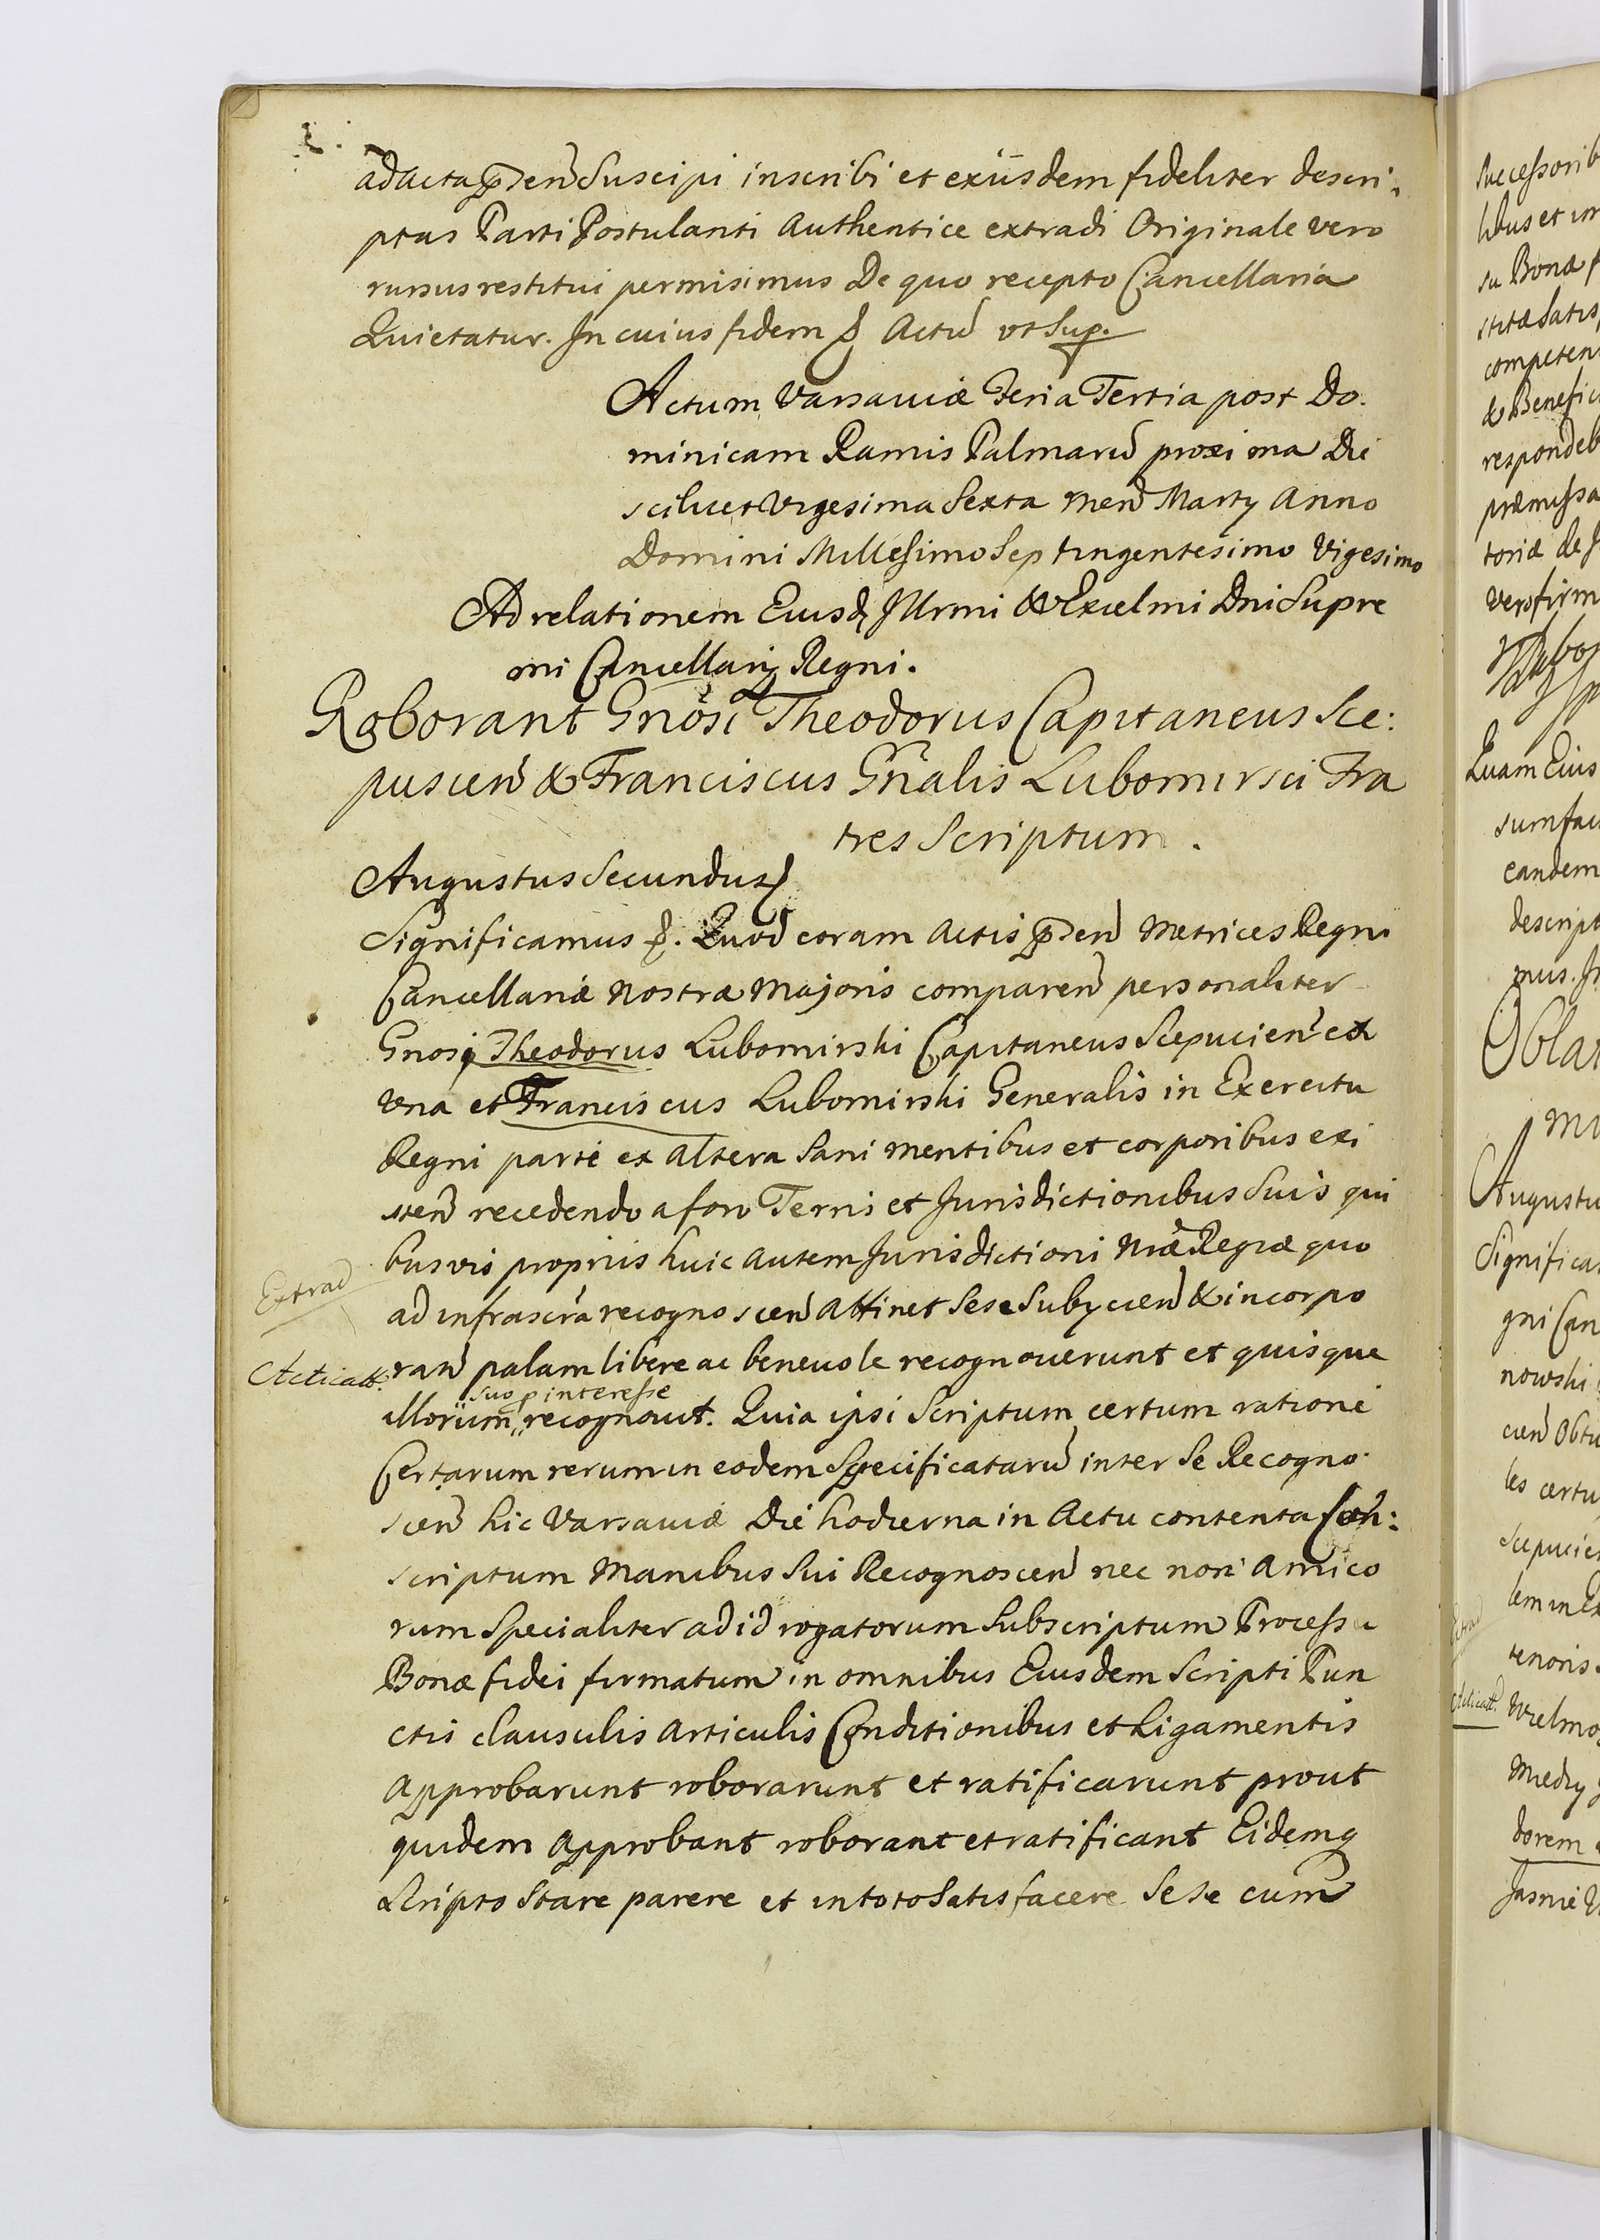 ad acta pñden Suscipi inscribi et exiisdem fideliter descri:
ptas Parti Postulanti Authentice extradi Originale vero
rursus restitui permisimus De quo recepto Cancellaria
Quietatur. In cuius fidem & Actũ ut Sup.
Actum Varsaviæ Feria Tertia post Do:
minicam Ramis Palmarũ proxima Die
scilicet Vigesima Sexta Men Martÿ Anno
Domini Millesimo Septingentesimo Vigesimo
Ad relationem Eiusd Illrmi & Excelmi Dni Supre
mi Cancellarÿ Regni.
Roborant Gnosi Theodorus Capitaneus Sce:
puscien & Franciscus Gñalis Lubomirsci Fra
tres Scriptum.
Augustus Secundus &
Significamus &. Quod coram Actis pñden Metrices Regni
Cancellariæ Nostræ Majoris comparen personaliter
Gnosi Theodorus Lubomirski Capitaneus Scepucien ex
una et Franciscus Lubomirski Generalis in Exercitu
Regni parte ex altera Sani mentibus et corporibus exi
sten recedendo a foro Terris et Jurisdictionibus Suis qui
busvis proprijs huic autem Jurisdictioni Nræ Regiæ quo
Extrad
ad infrascrã recognoscen Attinet Sese Subÿcien & incorpo
Acticatt.
ran palam libere ac benevole recognoverunt et quisque
suo p interesse
illorum recognovit. Quia ipsi Scriptum certum ratione
Certarum rerum in eodem Specificatarũ inter Se Recogno
scen hic Varsaviæ Die hodierna in Actu contenta Con:
scriptum Manibus Sui Recognoscen nec non Amico
rum Specialiter ad id rogatorum Subscriptum Processu
Bonæ fidei firmatum in omnibus Eiusdem Scripti Pun
ctis clausulis Articulis Conditionibus et Ligamentis
Approbarunt roborarunt et ratificarunt prout
quidem Approbant roborant et ratificant Eidemq
Scripto Stare parere et in toto Satisfacere Sese cum